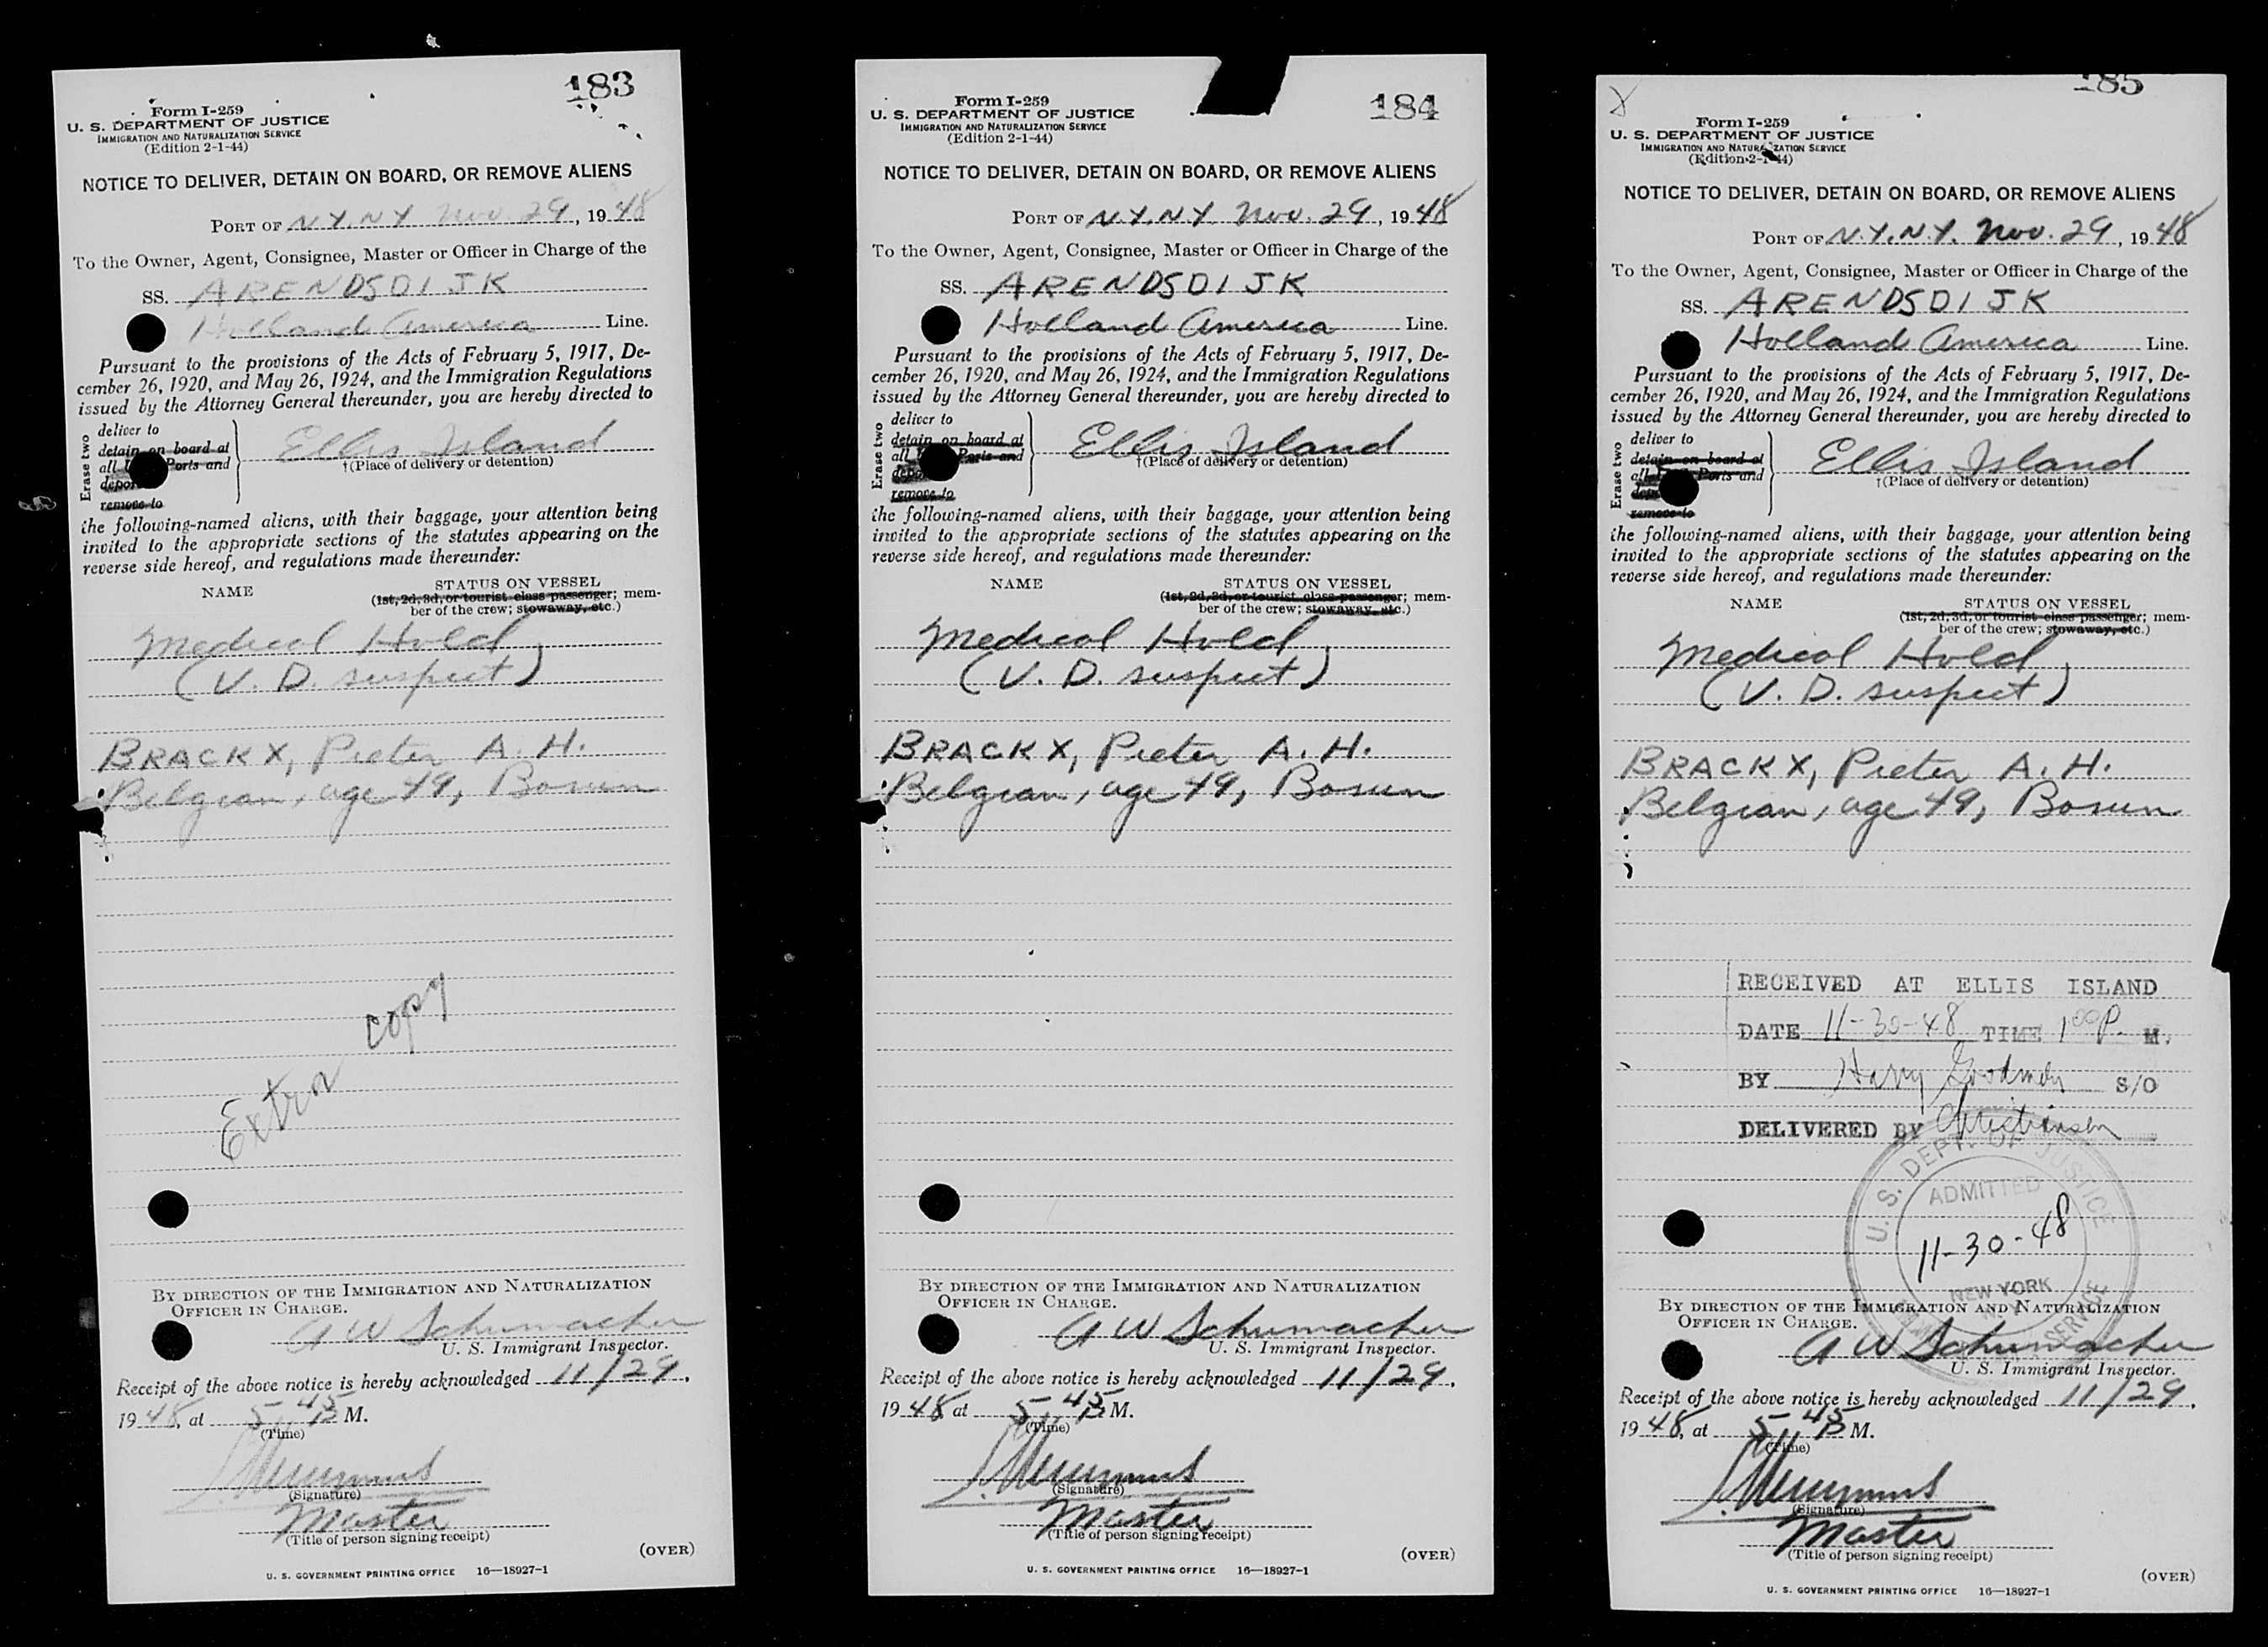 183
Form I-259
U. S. DEPARTMENT OF JUSTICE
IMMIGRATION AND NATURALIZATION SERVICE
(Edition 2-1-44)
NOTICE TO DELIVER, DETAIN ON BOARD, OR REMOVE ALIENS
PORT OF N.Y. N.Y. Nov. 29, 1948
To the Owner, Agent, Consignee, Master or Officer in Charge of the
SS. ARENDSDIJK
Holland America Line.
Pursuant to the provisions of the Acts of February 5, 1917, De-
cember 26, 1920, and May 26, 1924, and the Immigration Regulations
issued by the Attorney General thereunder, you are hereby directed to
Erase two
deliver to
detain on board at
all Ports and
remove to
Ellis Island
†(Place of delivery or detention)
the following-named aliens, with their baggage, your attention being
invited to the appropriate sections of the statutes appearing on the
reverse side hereof, and regulations made thereunder:
NAME
STATUS ON VESSEL
(1st, 2d, 3d, or tourist class passenger; mem-
ber of the crew; stowaway, etc.)
Medical Hold
(V. D. suspect)
BRACKX, Pieter A. H.
Belgian, age 49, Bosun
Extra copy
BY DIRECTION OF THE IMMIGRATION AND NATURALIZATION
OFFICER IN CHARGE.
A W Schumacher
U. S. Immigrant Inspector.
Receipt of the above notice is hereby acknowledged 11/29,
1948, at 5 45 P M.
(Time)
(Signature)
Master
(Title of person signing receipt)
(OVER)
U. S. GOVERNMENT PRINTING OFFICE 16—18927-1
184
Form I-259
U. S. DEPARTMENT OF JUSTICE
IMMIGRATION AND NATURALIZATION SERVICE
(Edition 2-1-44)
NOTICE TO DELIVER, DETAIN ON BOARD, OR REMOVE ALIENS
PORT OF N.Y. N.Y. Nov. 29, 1948
To the Owner, Agent, Consignee, Master or Officer in Charge of the
SS. ARENDSDIJK
Holland America Line.
Pursuant to the provisions of the Acts of February 5, 1917, De-
cember 26, 1920, and May 26, 1924, and the Immigration Regulations
issued by the Attorney General thereunder, you are hereby directed to
Erase two
deliver to
detain on board at
all Ports and
remove to
Ellis Island
†(Place of delivery or detention)
the following-named aliens, with their baggage, your attention being
invited to the appropriate sections of the statutes appearing on the
reverse side hereof, and regulations made thereunder:
NAME
STATUS ON VESSEL
(1st, 2d, 3d, or tourist class passenger; mem-
ber of the crew; stowaway, etc.)
Medical Hold
(V. D. suspect)
BRACKX, Pieter A. H.
Belgian, age 49, Bosun
BY DIRECTION OF THE IMMIGRATION AND NATURALIZATION
OFFICER IN CHARGE.
A W Schumacher
U. S. Immigrant Inspector.
Receipt of the above notice is hereby acknowledged 11/29,
1948, at 5 45 P M.
(Time)
(Signature)
Master
(Title of person signing receipt)
(OVER)
U. S. GOVERNMENT PRINTING OFFICE 16—18927-1
185
X
Form I-259
U. S. DEPARTMENT OF JUSTICE
IMMIGRATION AND NATURALIZATION SERVICE
(Edition 2-1-44)
NOTICE TO DELIVER, DETAIN ON BOARD, OR REMOVE ALIENS
PORT OF N.Y. N.Y. Nov. 29, 1948
To the Owner, Agent, Consignee, Master or Officer in Charge of the
SS. ARENDSDIJK
Holland America Line.
Pursuant to the provisions of the Acts of February 5, 1917, De-
cember 26, 1920, and May 26, 1924, and the Immigration Regulations
issued by the Attorney General thereunder, you are hereby directed to
Erase two
deliver to
detain on board at
all Ports and
remove to
Ellis Island
†(Place of delivery or detention)
the following-named aliens, with their baggage, your attention being
invited to the appropriate sections of the statutes appearing on the
reverse side hereof, and regulations made thereunder:
NAME
STATUS ON VESSEL
(1st, 2d, 3d, or tourist class passenger; mem-
ber of the crew; stowaway, etc.)
Medical Hold
(V. D. suspect)
BRACKX, Pieter A. H.
Belgian, age 49, Bosun
RECEIVED AT ELLIS ISLAND
DATE 11-30-48 TIME 1 00 P. M.
BY Harry S/O
DELIVERED BY Christiansen
U. S. DEPT. OF JUSTICE
ADMITTED
11-30-48
NEW YORK
N. Y.
SERVICE
BY DIRECTION OF THE IMMIGRATION AND NATURALIZATION
OFFICER IN CHARGE.
A W Schumacher
U. S. Immigrant Inspector.
Receipt of the above notice is hereby acknowledged 11/29,
1948, at 5 45 P M.
(Time)
(Signature)
Master
(Title of person signing receipt)
(OVER)
U. S. GOVERNMENT PRINTING OFFICE 16—18927-1